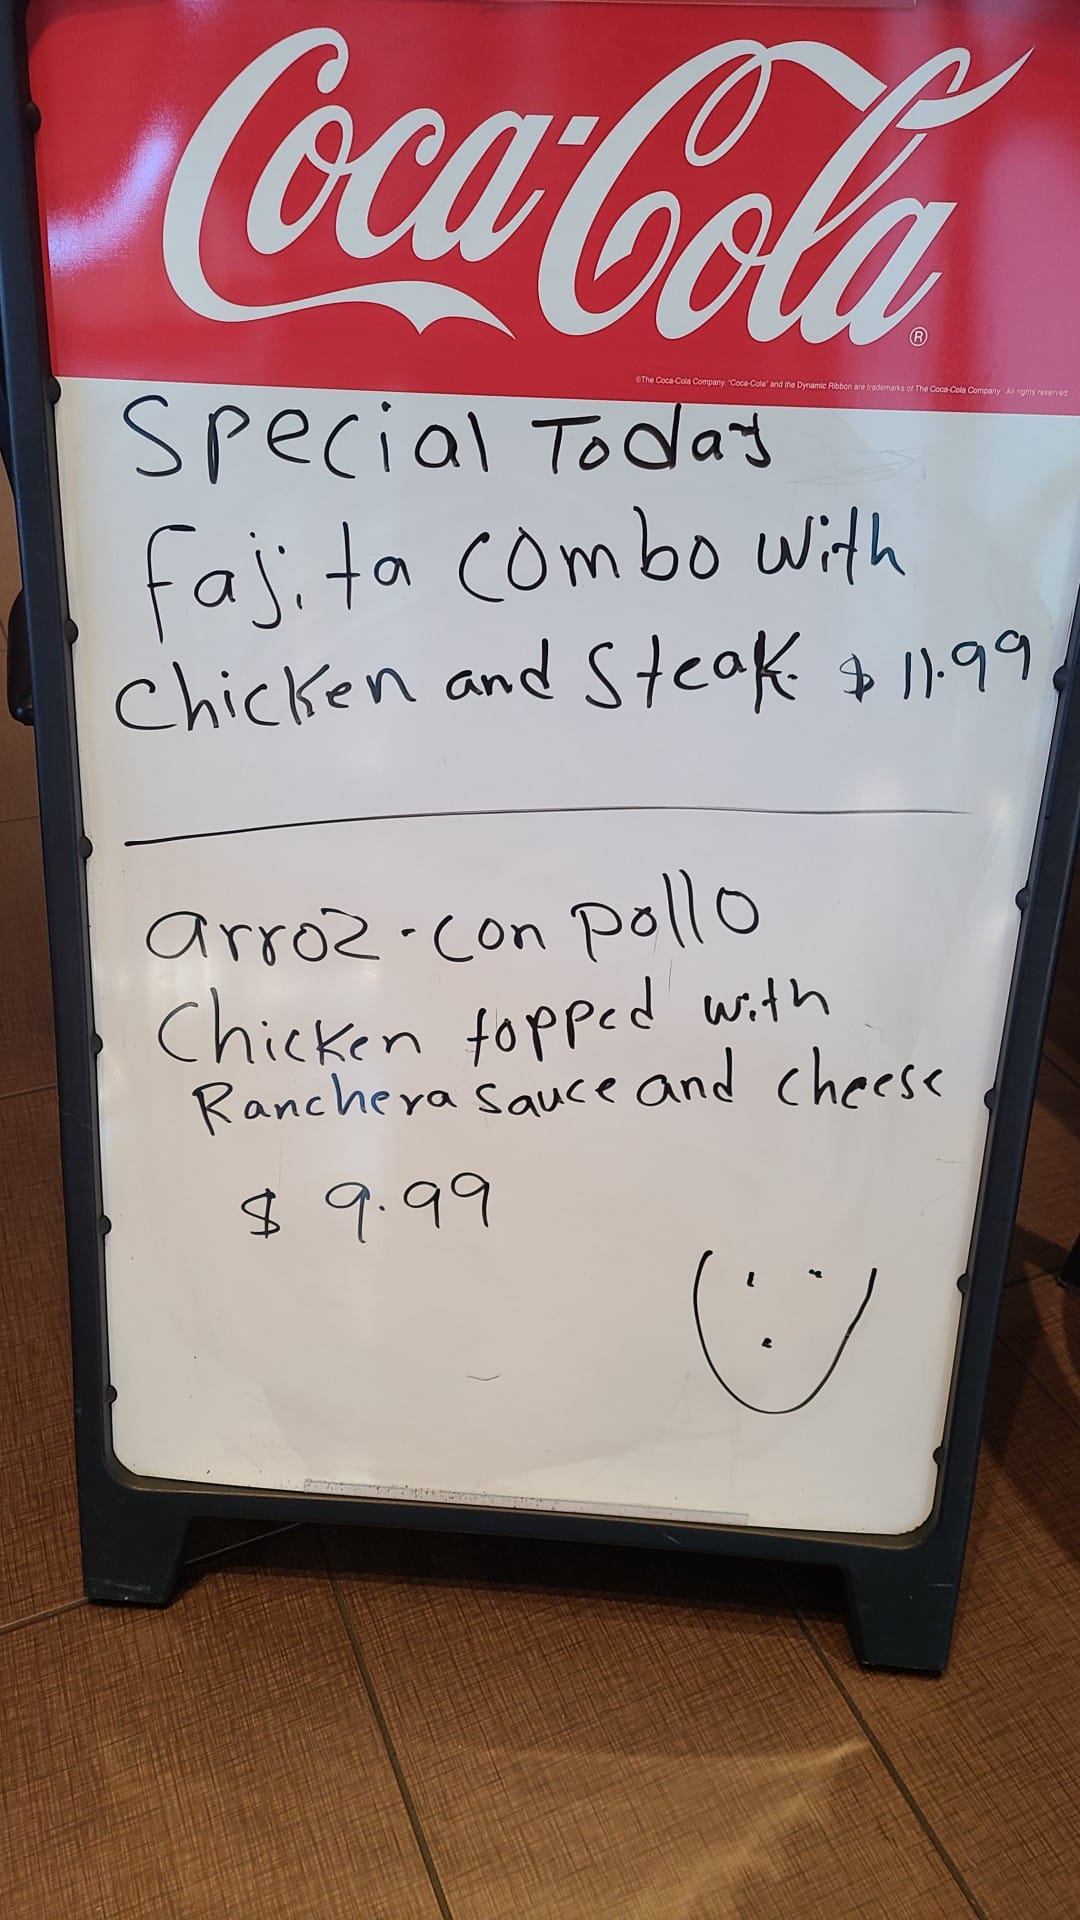 Coca-Cola®
©The Coca-Cola Company. "Coca-Cola" and the Dynamic Ribbon are trademarks of The Coca-Cola Company. All rights reserved
Special Today
Fajita combo with
Chicken and Steak $11.99
arroz-con pollo
Chicken topped with
Ranchera sauce and cheese
$ 9.99